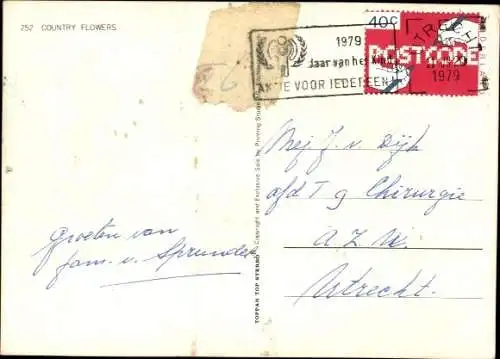 252 COUNTRY FLOWERS
1979
Jaar van het Kind
AKTIE VOOR IEDEREEN
40c
POSTCODE
UTRECHT
1979
NEDERLAND
Mej. J. v. Dijk
afd T g Chirurgie
A.Z.U.
Utrecht.
Groeten van
fam. v. Sprundel
TOPPAN TOP STEREO ® Copyright and Exclusive Sale by